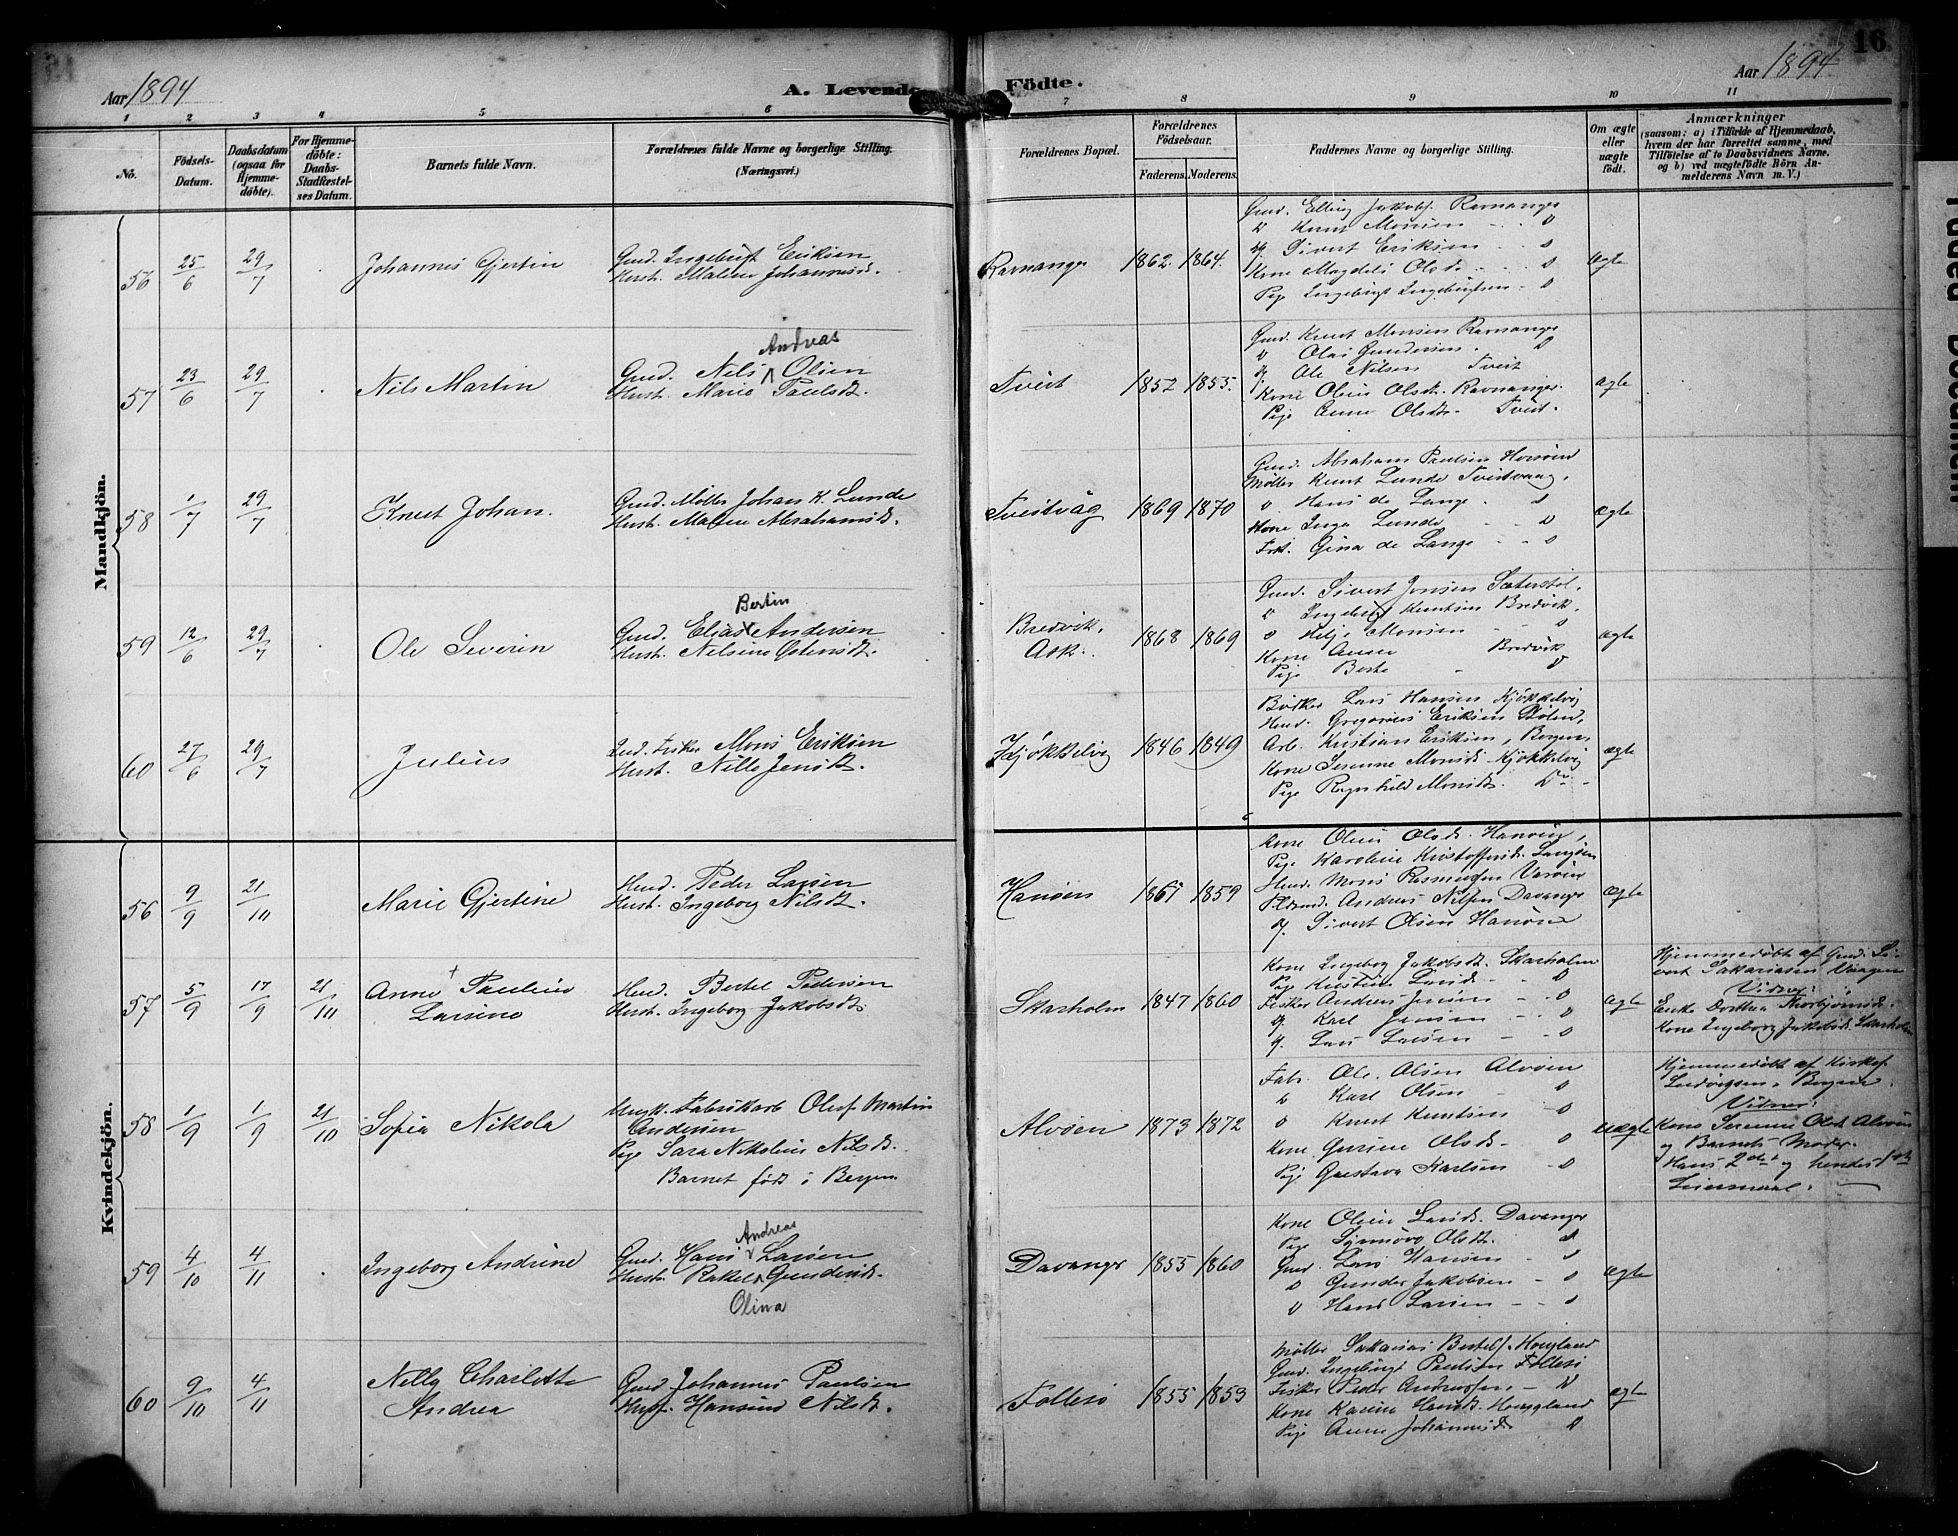 Aar 1894
A. Levende Fødte.
Aar 1894
16
1 2 3 4 5 6 7 8 9 10 11
No.
Fødsels-
Datum.
Daabsdatum
(ogsaa for
Hjemme-
døbte).
For Hjemme-
døbte:
Daabs-
Stadfæstel-
ses Datum.
Barnets fulde Navn.
Forældrenes fulde Navne og borgerlige Stilling.
(Næringsvei.)
Forældrenes Bopæl.
Forældrenes
Fødselsaar.
Faderens. Moderens.
Faddernes Navne og borgerlige Stilling.
Om ægte
eller
uægte
født.
Anmærkninger
(saasom: a) i Tilfælde af Hjemmedaab,
hvem der har forrettet samme, med
Tilføielse af to Daabsvidners Navne,
og b) ved uægtefødte Børn An-
melderens Navn m. V.)
Mandkjön.
56 25/6 29/7 Johannes Gjertin
Gmd. Ingebrigt Eriksen
Hust. Malene Johannesd.
Ravnanger 1862. 1864.
Gmd. Elling Jakobs. Ravnanger
" Knut Monsen - - "
Ug. Sivert Eriksen - - "
Kone Magdeli Olsd. - - "
Pige Ingeborg Ingebrigtsen - "
ægte
57 23/6 29/7 Nils Martin
Andreas
Gmd. Nils Olsen
Hust. Marie Paulsd.
Tveit 1852 1855.
Gmd. Knut Monsen Ravnanger
" Olai Gundersen. "
Ug Ole Nilsen Tveit
Kone Oline Olsd. Ravnanger.
Pige Anne Olsdt. Tveit.
ægte
58 1/7 29/7 Knut Johan.
Gmd. Møller Johan K. Lunde
Hust. Malene Abrahamsd.
Tveitvåg 1869 1870
Gmd. Abraham Paulsen
Møller Knut Lunde Tveitvaag,
" Hans de Lange. "
Kone Inga Lunde - - "
Frk. Gina de Lange - - "
ægte
59 12/6 29/7 Ole Severin
Bertin
Gmd. Elias Andersen
Hust. Nelsine
Bredvik,
Ask. 1868 1869
Gmd. Sivert Jonsen
" Ingebrigt Knutsen Bredvik.
" Helje Monsen - "
Kone Anna Bredvik
Pige Berta - "
ægte
60 27/6 29/7 Julius
Ind. Fisker Mons Eriksen
Hust. Nille Jensdt.
Kjøkkelvig 1846 1849
Bødker Lars Hansen Kjøkkelvig
Hmd. Gregorius Eriksen
Arb. Kristian Eriksen, Bergen
Kone Serenne Monsd. Kjøkkelvig
Pige Ragnhild Monsdt. Do -
ægte
Kvindekjön.
56 9/9 21/10 Marie Gjertine
Hmd. Peder Larsen
Hust. Ingeborg Nilsdt.
Hanøen 1867 1859
Kone Oline Olsd. Hanøen,
Pige Karoline Kristoffersd.
Hmd. Mons Rasmussen
Andreas Nilsen Davanger
Ug. Sivert Olsen Hanøen
ægte
57 5/9 17/9 21/10 Anne + Pauline
Larsine
Hmd. Bertel Pedersen
Hust. Ingeborg Jakobsdt.
Skarholm 1847 1860
Kone Ingeborg Jakobsdt. Skarholm
Pig Kristine Larsd. - "
Fisker Andreas Jensen - "
Ug. Karl Jensen - "
Ug. Lars Larsen - "
ægte
Hjemmedøbt af Gmd. Si-
vert Sakariassen Vaagen
Vidner:
Enke Dorthea Thorbjørnsd.
Kone Ingeborg Jakobsd. Skarholm
58 1/9 1/9 21/10 Sofia Nikola
Ungk. Fabrikarb Oluf Martin
Andersen
Pige Sara Nikoline Nilsd.
Barnet født i Bergen
Alvøen 1873 1872
Fab. Ole Olsen Alvøen
" Karl Olsen - "
" Knut Knutsen - "
Kone Gurine Olsd. - "
Pige Gustava Karlsen - "
uægte
Hjemmedøbt af
Ludvigsen, Bergen.
Vidner:
Kone Serenne Olsd. Alvøen
og Barnets Moder.
Hans 2det og hendes 1ste
Leiermaal. -
59 4/10 4/11 Ingeborg Andrine
Andreas
Gmd. Hans Larsen
Hust. Rakel Gundersd.
Olina
Davanger 1855 1860
Kone Oline Larsd. Davanger
Pige Synnøve Olsdt. "
Gmd. Lars Hansen - "
" Gunder Jakobsen - "
" Hans Larsen - - "
ægte
60 9/10 4/11 Nelly Charlotte
Andrea
Gmd Johannes Paulsen
Hust. Hansine Nilsd.
Follesø 1855 1853
Møller Sakarias Bertels. Hougland
Gmd. Ingebrigt Paulsen Follesø
Fisker Peder Andreassen, - "
Kone Karine Hansdt. Hougland
Pige Anne Johannesdr "
ægte